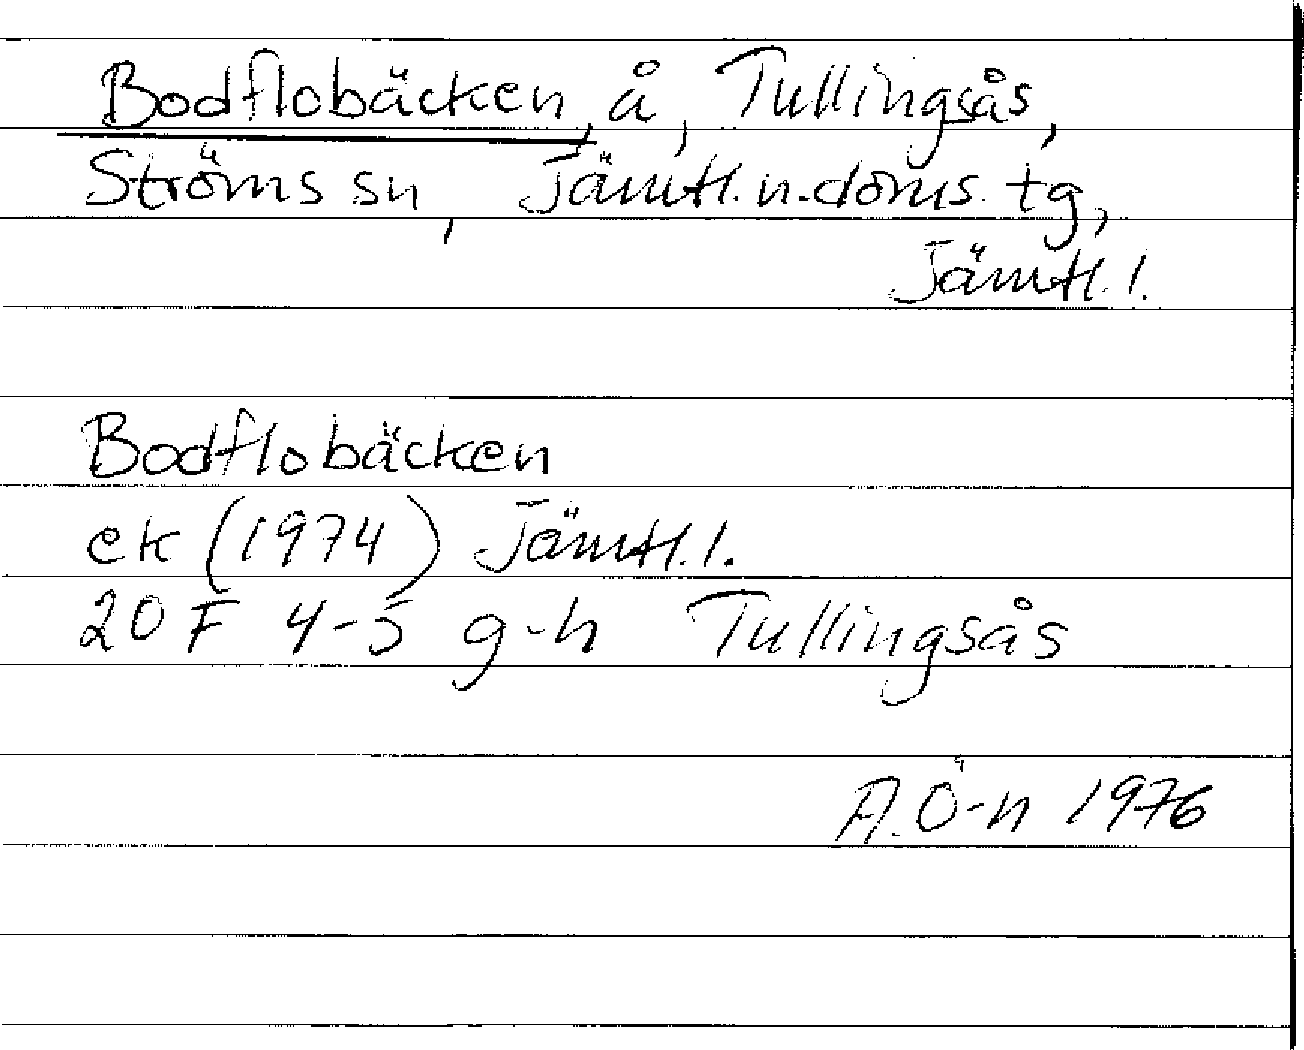 Bodflobäcken, å, Tullingsås,
Ströms sn, Jämtl. n. doms. tg,
Jämtl. l.
Bodflobäcken
ek (1974) Jämtl. l.
20 F 4-5 g-h Tullingsås
A. Ö-n 1976